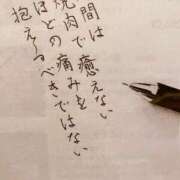 間は
焼肉では
癒えない
ほどの痛みを
抱え〜るべきではない